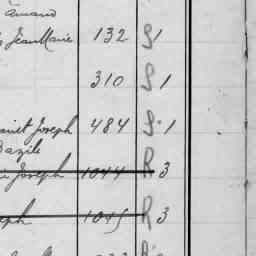 Amand
Jean Marie 132 S 1
310 S 1
Joseph 484 S 1
Bazile
Joseph 1044 R 3
eph 1045 R 3